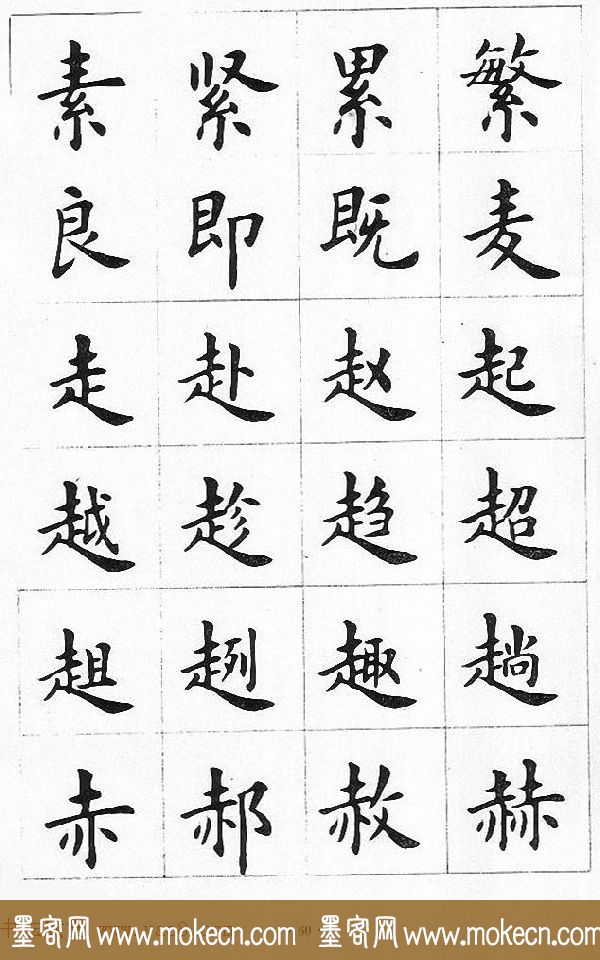 素 紧 累 繁
良 即 既 麦
走 赴 赵 起
越 趁 趋 超
趄 趔 趣 趟
赤 郝 赦 赫
60
墨客网 www.mokecn.com 墨客网 www.mokecn.com